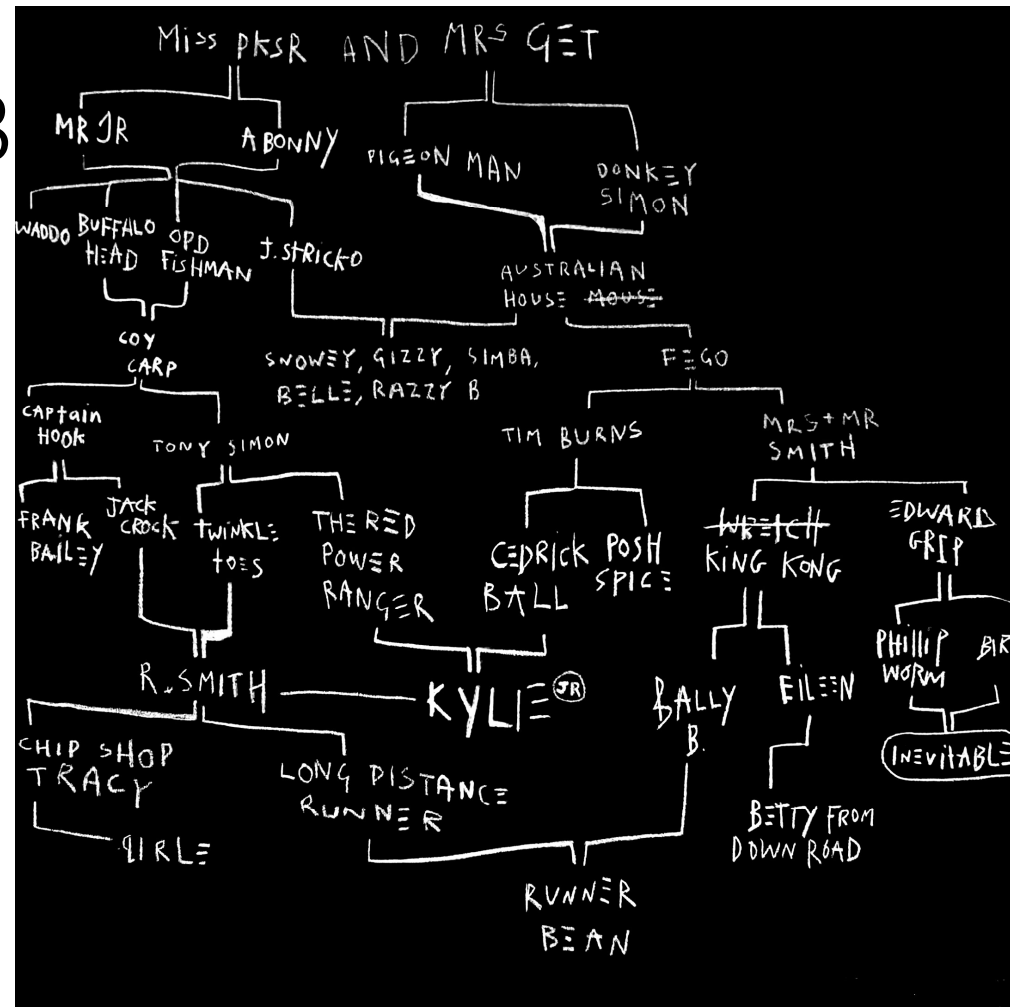 Miss PKSR AND MRS GET
MR JR
A BONNY
PIGEON MAN
DONKEY
SIMON
WADDO
BUFFALO
HEAD
OPD
FiSHMAN
J. StRickO
AUSTRALIAN
HOUSE MOUSE
COY
CARP
SNOWEY, GIZZY, SIMBA,
BELLE, RAZZY B
FEGO
CAPtain
HOOK
TONY SIMON
TIM BURNS
MRS + MR
SMITH
FRANK
BAILEY
JACK
CROCK
tWiNKLE
tOES
THE RED
POWER
RANGER
CEDRICK
BALL
POSH
SPICE
WRETCH
KiNG KONG
EDWARD
GRIP
R. SMITH
KYLIE JR
BALLY
B.
EiLEEN
PHilliP
WORM
BIR
INEVitABLE
CHIP SHOP
TRACY
LONG DISTANCE
RUNNER
BETTY FROM
DOWN ROAD
RUNNER
BEAN